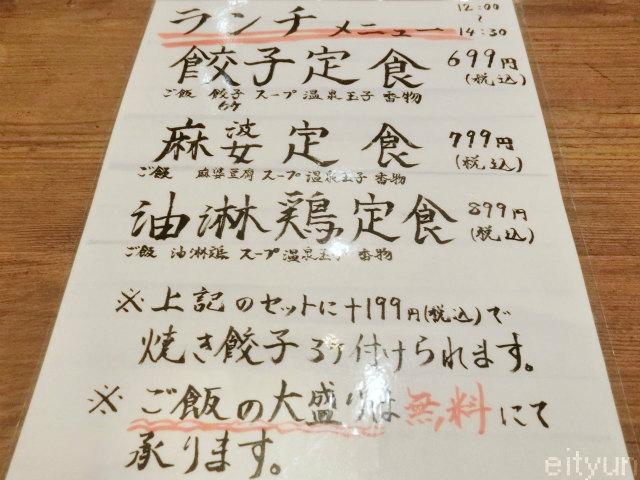 ランチメニュー 12:00
〜
14:30
餃子定食 699円
(税込)
ご飯 餃子 スープ 温泉玉子 香物
6ケ
麻婆定食 799円
(税込)
ご飯 麻婆豆腐 スープ 温泉玉子 香物
油淋鶏定食 899円
(税込)
ご飯 油淋鶏 スープ 温泉玉子 香物
※上記のセットに+199円(税込)で
焼き餃子3ケ付けられます。
※ご飯の大盛りは無料にて
承ります。
eityun